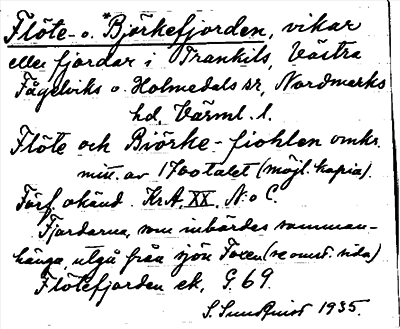 Flöte- o. *Björkefjorden, vikar
eller fjordar i Trankils, Västra
Fågelviks o. Holmedals sr, Nordmarks
hd, Värml. l.
Flöte och Biörke-fiohlen omkr.
mitt. av 1700talet (möjl. kopia).
Förf. okänd. Kr.A. XX. N:o C.
Fjordarna, som inbördes samman-
hänga, utgå från sjön Foxen (se omst. sida)
Flötefjorden ek. G. 69.
S. Sundquist 1935.